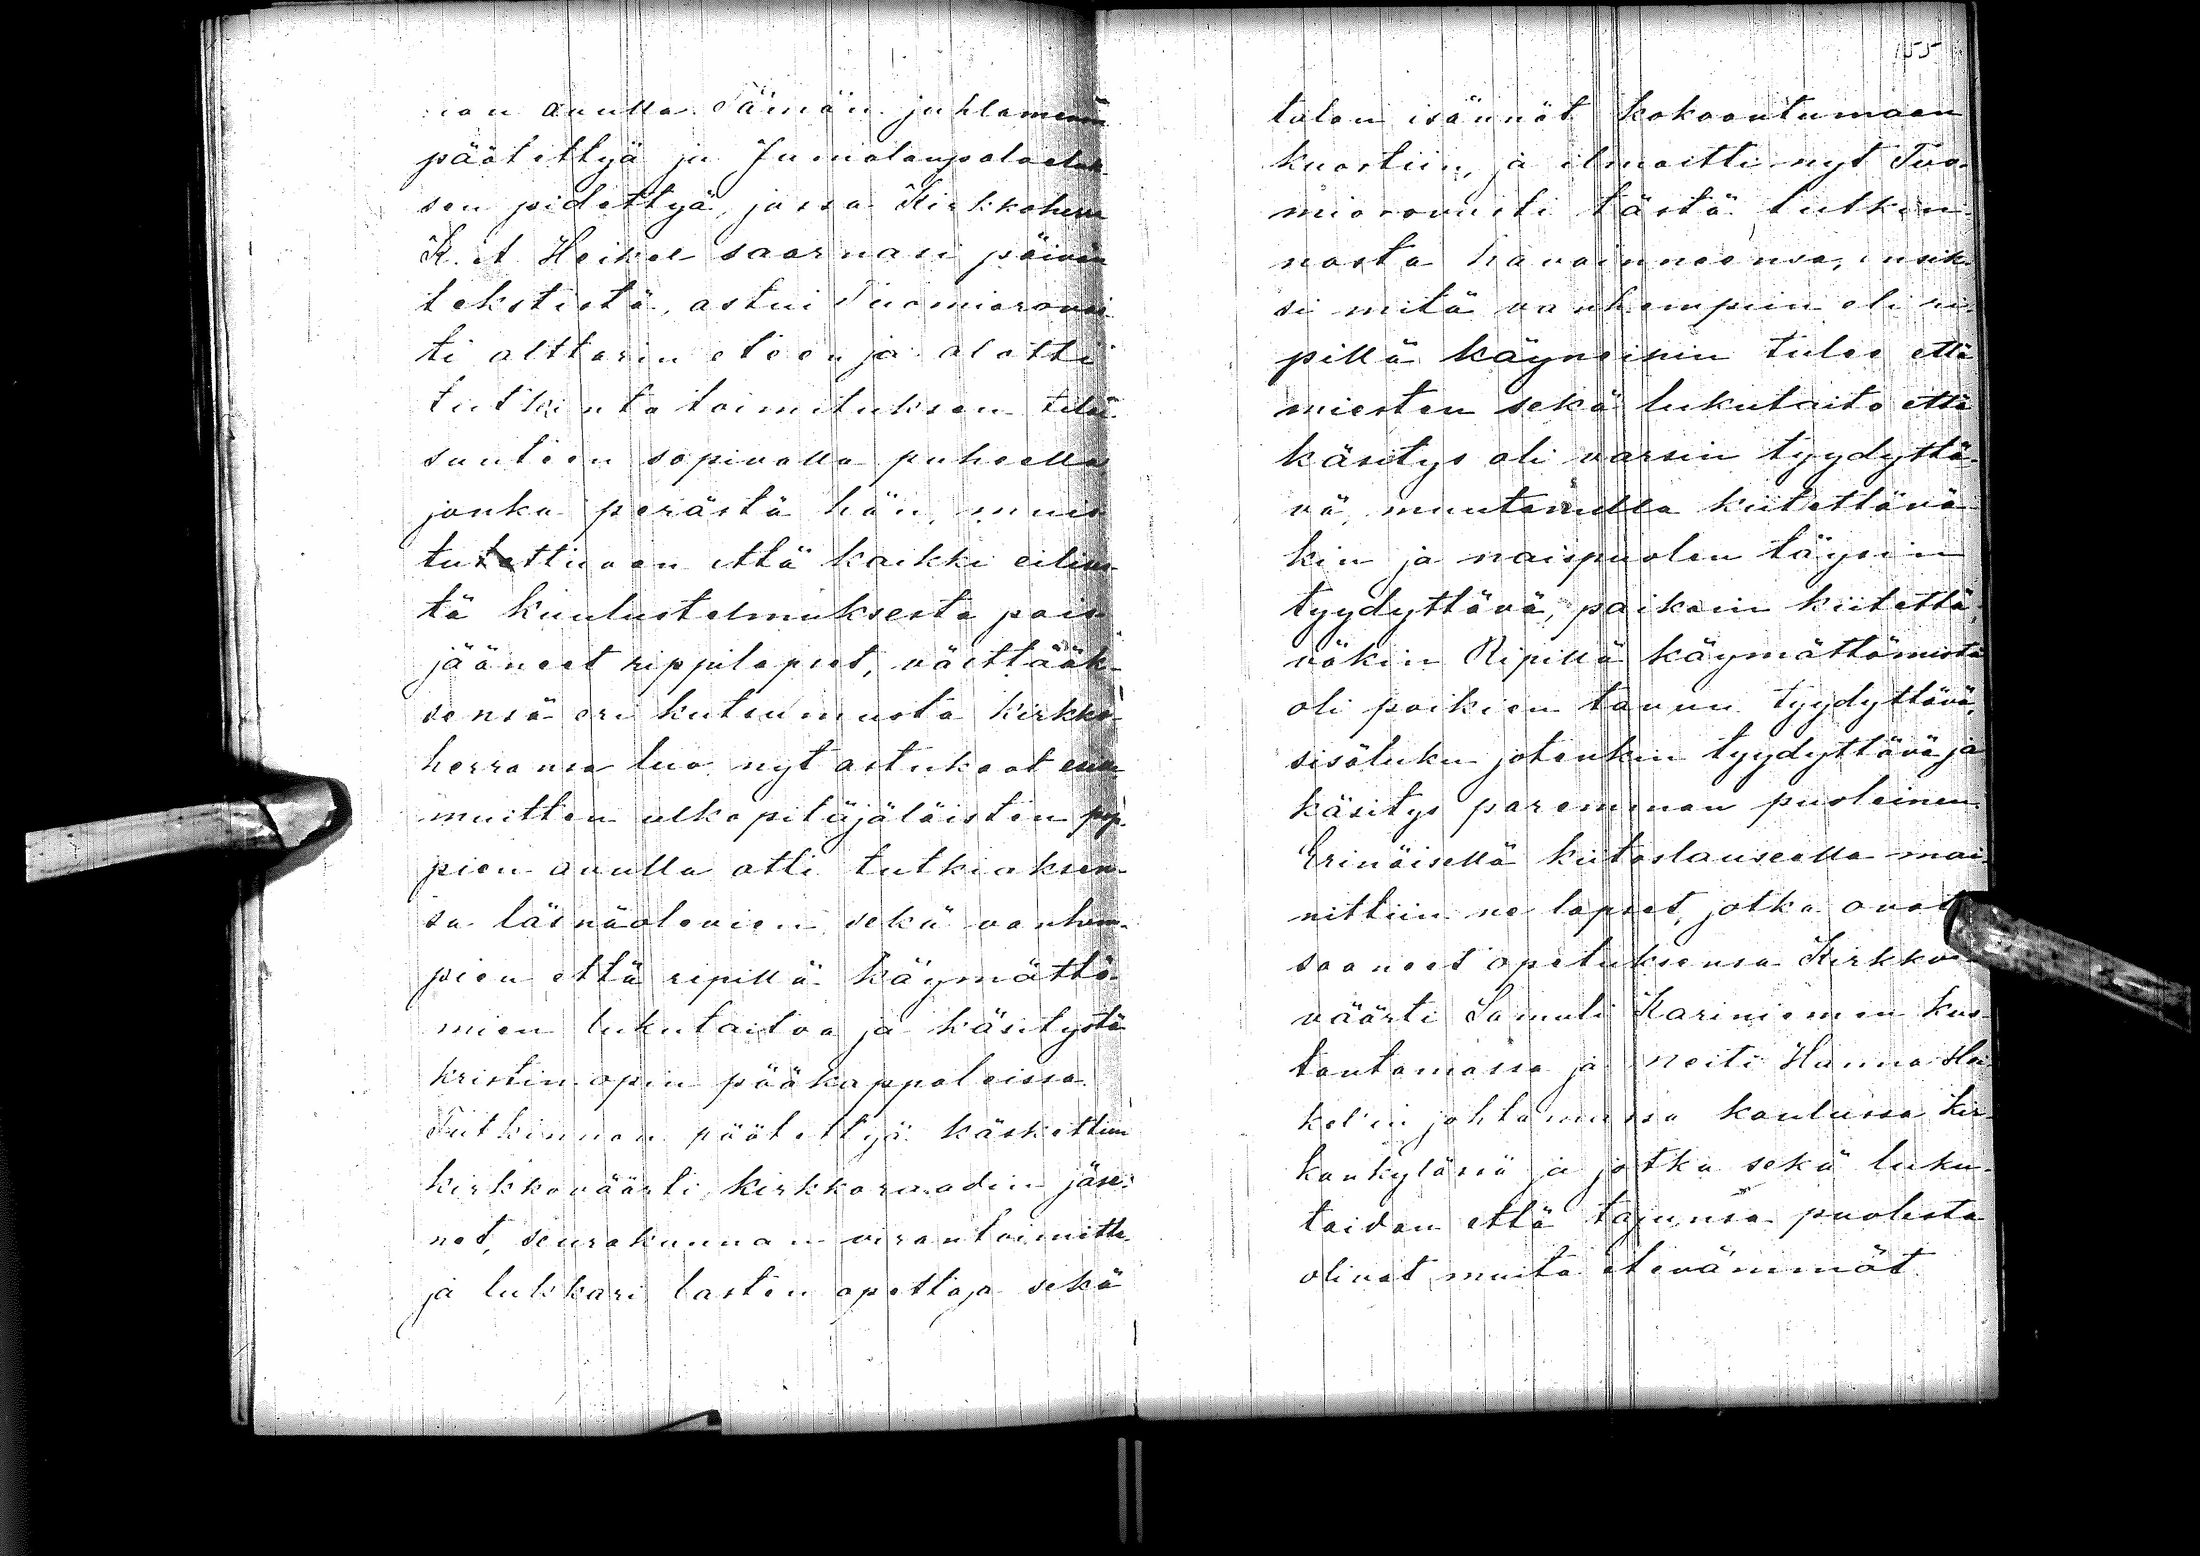 avulla. Tämän juhlamenon
päätettyä ja Jumalanpalveluk-
sen pidettyä, jossa Kirkkoherra
K. A. Heikel saarnasi päivän
tekstistä, astui Tuomiorovas-
ti alttarin eteen ja alotti
tutkintotoimituksen tilai-
suuteen sopivalla puheella
jonka perästä hän, muis-
tutettuaan että kaikki eilises-
tä kuulustelmuksesta pois
jääneet rippilapset, välttääk-
sensä eri kutsumusta kirkko-
herransa luo nyt astukoot esiin
muitten ulkopitäjäläisten pap-
pien avulla otti tutkiaksen-
sa läsnäolevien sekä vanhem-
pien että ripillä käymättö-
mien lukutaitoa ja käsitystä
kristinopin pääkappaleissa.
Tutkinnon päätettyä käskettiin
kirkkoväärti, kirkkoraadin jäse-
net, seurakunnan virantoimitta-
ja lukkari lasten opettaja sekä
155
talon isännät kokoontumaan
kuoriin, ja ilmoitti nyt Tuo-
miorovasti tästä tutkin-
nosta havainneensa, ensik-
si mitä vanhempiin eli ri-
pillä käyneisiin tulee että
miesten sekä lukutaito että
käsitys oli varsin tyydyttä-
vä, muutamilla kiitettävä-
kin ja naispuolen täysin
tyydyttävä, paikoin kiitettä-
väkin Ripillä käymättömistä
oli poikien tavuu tyydyttävä,
sisäluku jotenkin tyydyttävä ja
käsitys paremman puoleinen.
Erinäisellä kiitoslauseella mai-
nittiin ne lapset, jotka ovat
saaneet opetuksensa Kirkko-
väärti Samuli Kariniemen kus-
tantamassa ja neiti Hanna Hei-
kel'in johtamassa koulussa Kir-
konkylässä ja jotka sekä luku-
taidon että tajunsa puolesta
olivat muita etevämmät